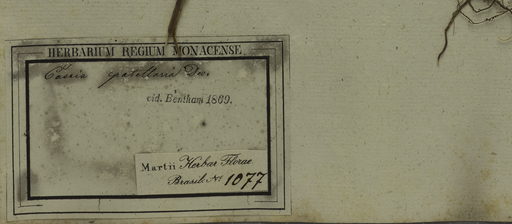 HERBARIUM REGIUM MONACENSE.
Cassia patellaria Dec.
eid. Bentham 1869.
Martii Herbar. Florae
Brasil. No. 1077